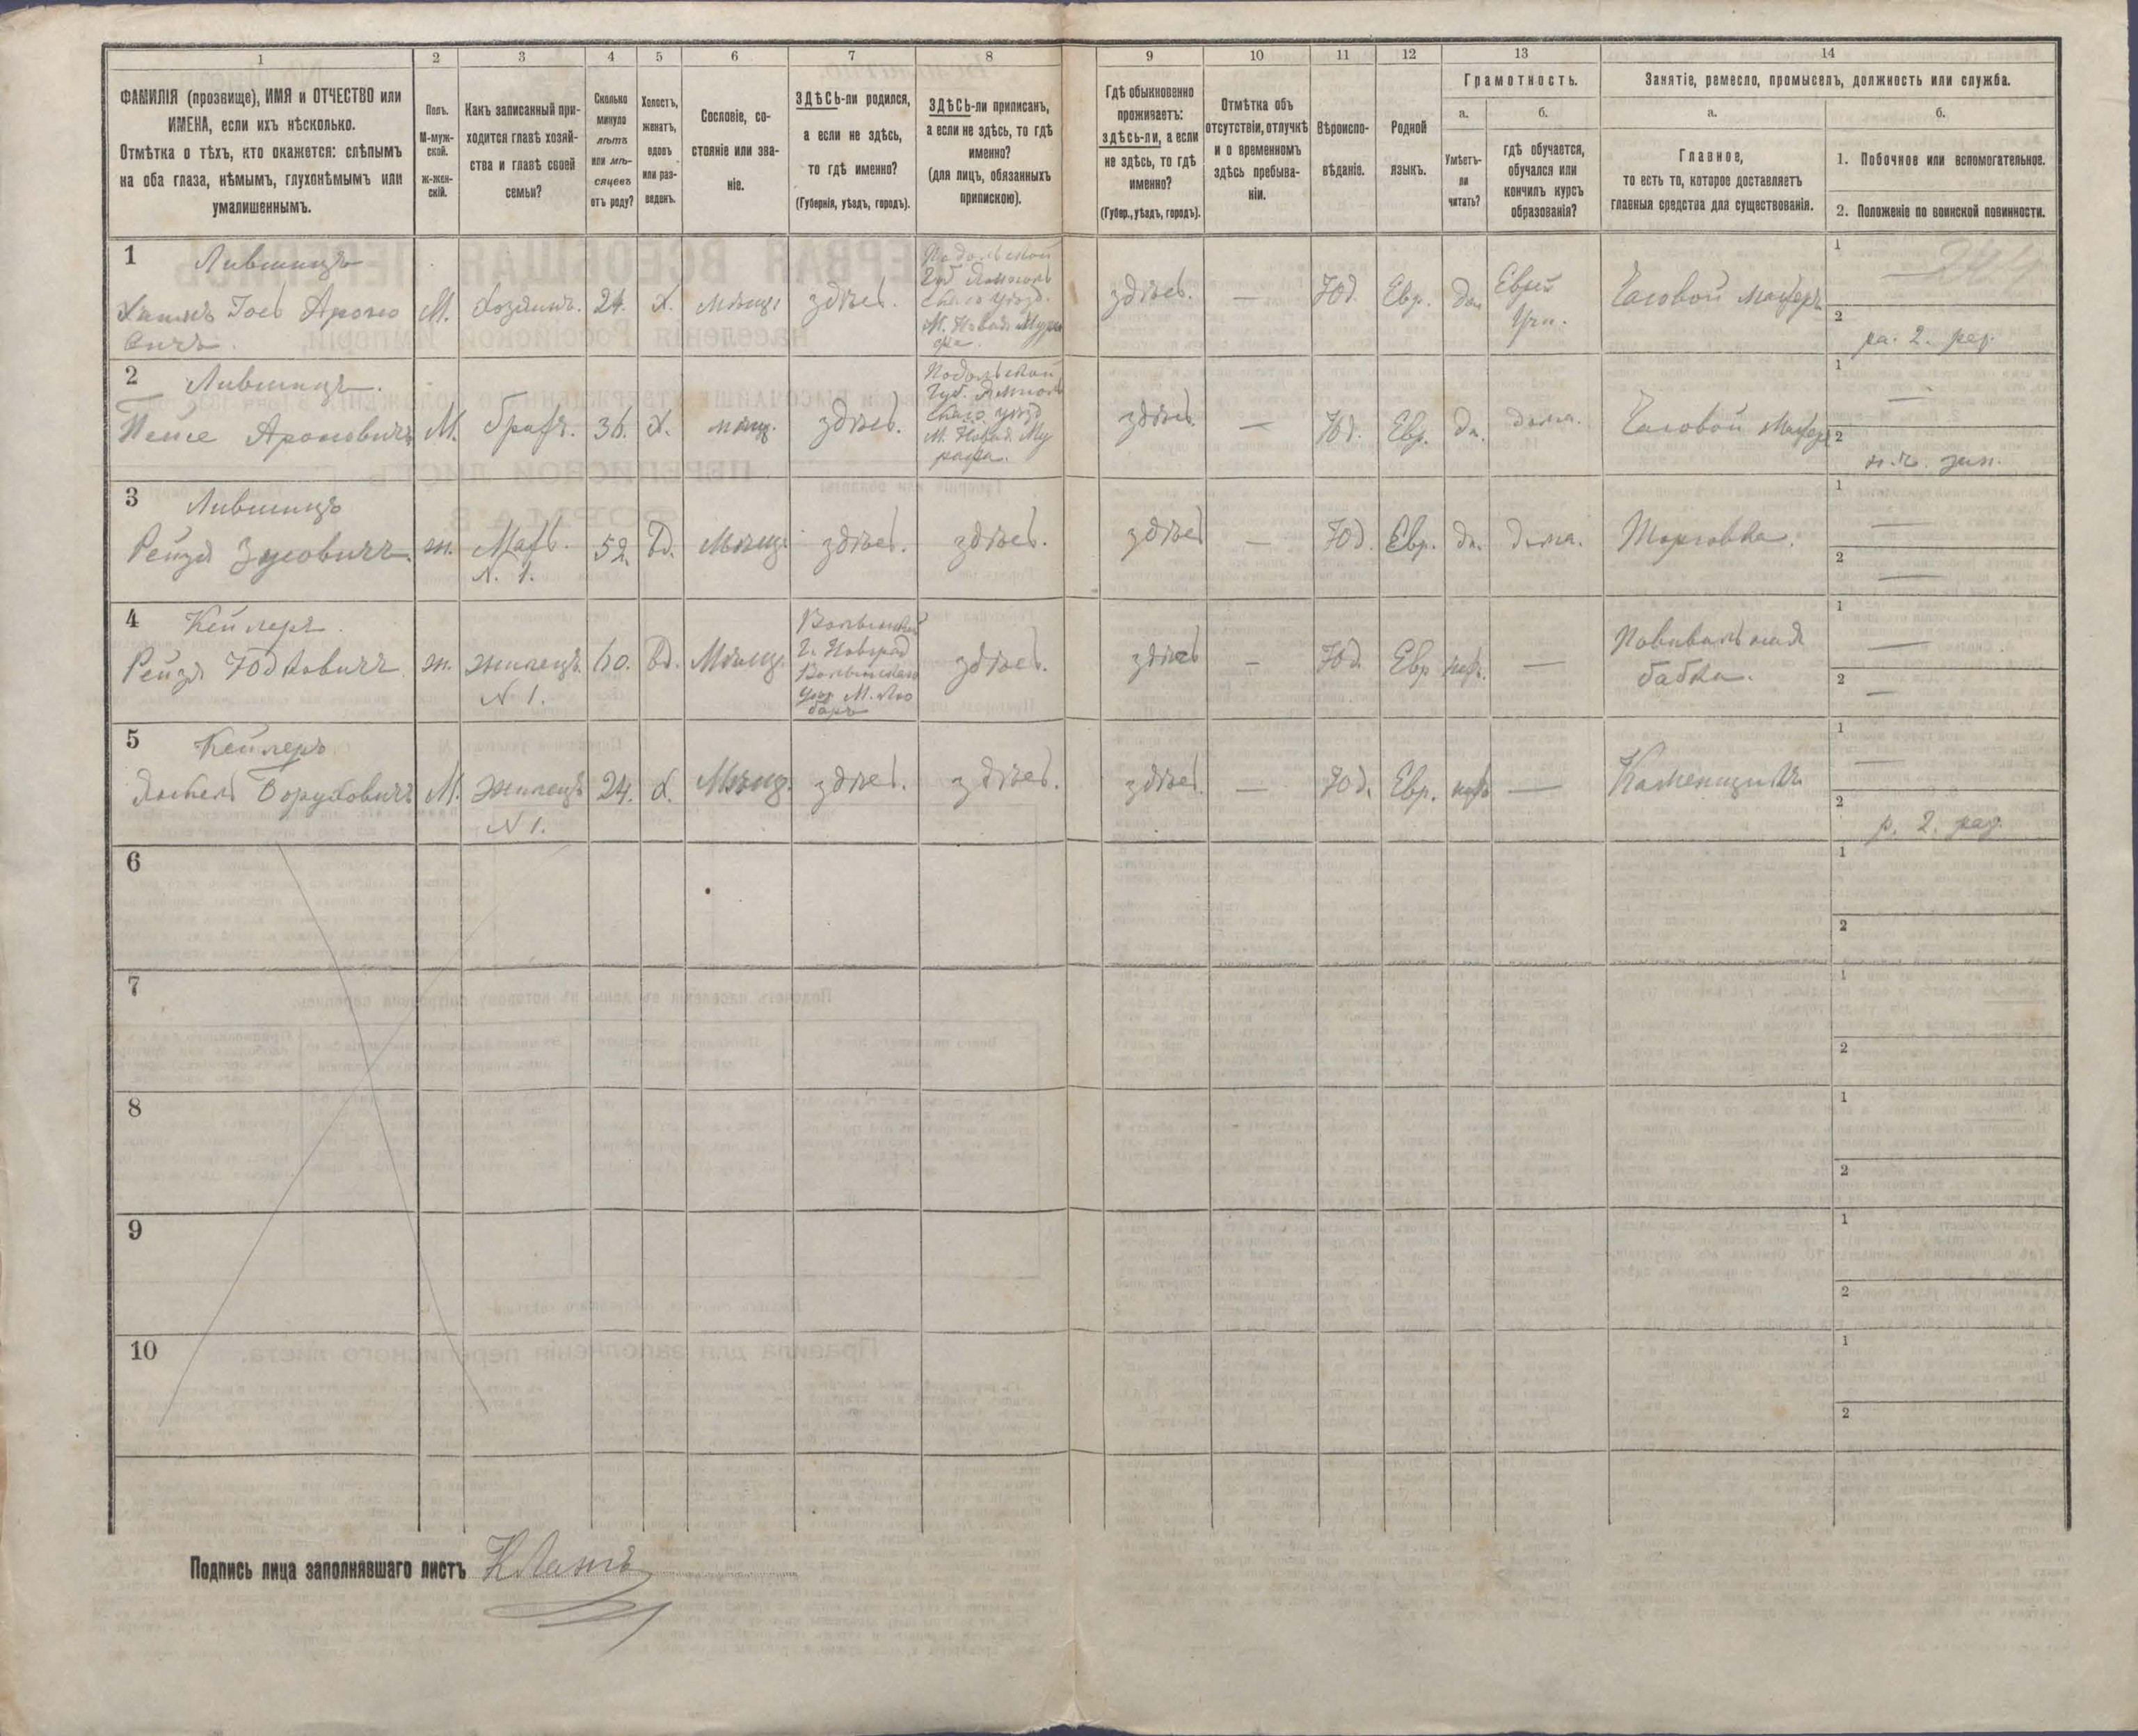 1
2
3
4
5
6
7
8
9
10
11
12
13
14
ФАМИЛІЯ (прозвище), ИМЯ и ОТЧЕСТВО или
ИМЕНА, если ихъ нѣсколько.
Отмѣтка о тѣхъ, кто окажется: слѣпымъ
на оба глаза, нѣмымъ, глухонѣмымъ или
умалишеннымъ.
Полъ.
М-муж-
ской.
Ж-жен-
скій.
Какъ записанный при-
ходится главѣ хозяй-
ства и главѣ своей
семьи?
Сколько
минуло
лѣтъ
или мѣ-
сяцевъ
отъ роду?
Холостъ,
женатъ,
вдовъ
или раз-
веденъ.
Сословіе, со-
стояніе или зва-
ніе.
ЗДѢСЬ-ли родился,
а если не здѣсь,
то гдѣ именно?
(Губернія, уѣздъ, городъ).
ЗДѢСЬ-ли приписанъ,
а если не здѣсь, то гдѣ
именно?
(для лицъ, обязанныхъ
припискою).
Гдѣ обыкновенно
проживаетъ:
здѣсь-ли, а если
не здѣсь, то гдѣ
именно?
(Губер., уѣздъ, городъ).
Отмѣтка объ
отсутствіи, отлучкѣ
и о временномъ
здѣсь пребыва-
ніи.
Вѣроиспо-
вѣданіе.
Родной
языкъ.
Грамотность.
а.
Умѣетъ-
ли
читать?
б.
гдѣ обучается,
обучался или
кончилъ курсъ
образованія?
Занятіе, ремесло, промыселъ, должность или служба.
а.
Главное,
то есть то, которое доставляетъ
главныя средства для существованія.
б.
1. Побочное или вспомогательное.
2. Положеніе по воинской повинности.
1
Лившицъ
Хаимъ Іось Ароно
вичъ.
М.
Хозяинъ.
24.
Х.
Мѣщ.
здѣсь.
Подольской
Губ. Ямполь
скаго уѣзд.
М. Новая Мура
фа.
здѣсь.
—
Юд.
Евр.
да
Часовой мастеръ
1
—
2
ра. 2. раз.
2
Лившицъ.
Ароновичъ
М.
братъ.
36.
Х.
мѣщ.
здѣсь.
Подольской
Губ. Ямполь
скаго уѣзд
М. Новая Му
рафа.
здѣсь.
—
Юд.
Евр.
да.
дома.
Часовой мастеръ
1
—
2
3
Лившицъ
Рейзя Зусовичъ.
ж.
Мать.
N. 1.
52.
Вд.
Мѣщ.
здѣсь.
здѣсь.
здѣсь
—
Юд.
Евр.
да.
дома.
Торговка.
1
—
2
—
4
Кейлеръ.
Рейзя Юдковичъ.
ж.
жилецъ.
N 1.
60.
Вд.
Мѣщ.
Волынской
Г. Новград
Волынскаго
уѣз. М. Лю
баръ
здѣсь.
здѣсь
—
Юд.
Евр
нѣт.
—
Повивальная
бабка.
1
—
2
—
5
Кейлеръ
Борухович
М.
жилецъ
N 1.
24.
Х.
Мѣщ.
здѣсь.
здѣсь.
здѣсь.
—
Юд.
Евр.
нѣт
—
Каменщикъ
1
—
2
р. 2. раз.
6
1
2
7
1
2
8
1
2
9
1
2
10
1
2
Подпись лица заполнявшаго листъ